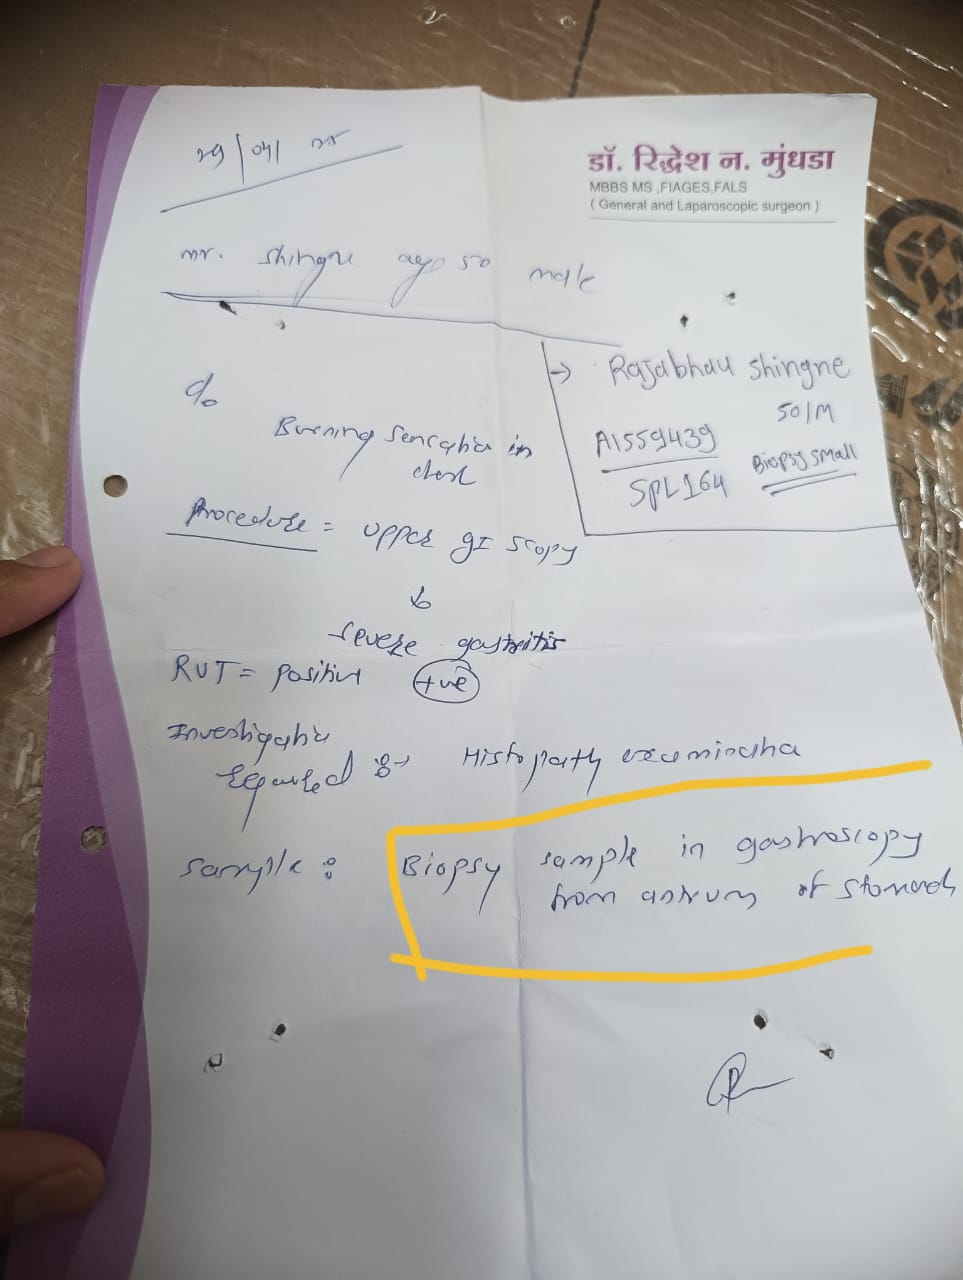 29/04/25
डॉ. रिद्धेश न. मुंधडा
MBBS MS ,FIAGES,FALS
( General and Laparoscopic surgeon )
mr. Shingne age 50 male
→ Rajabhau Shingne
50/M
A1559439
SPL164
Biopsy small
c/o
Burning sensation in
chest
Procedure = upper gI scopy
↓
severe gastritis
RUT = positive +ve
Investigation
required :-
Histopath examination
sample :
Biopsy sample in gastroscopy
from antrum of stomach